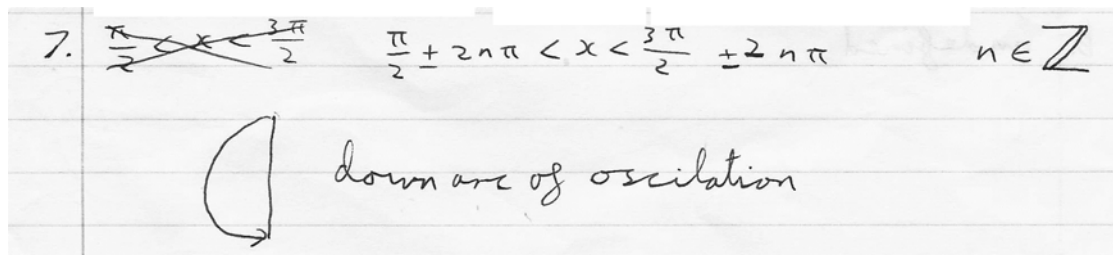 7. π/2 < x < 3π/2 π/2 ± 2nπ < x < 3π/2 ± 2nπ n ∈ ℤ
down arc of oscilation